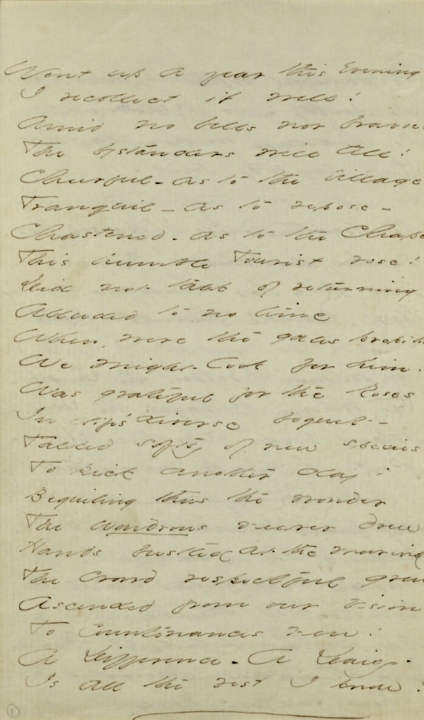 Went up a year this Evening
I recollect it well!
Amid no bells nor brav
The bystanders will tell!
Cheerful - as to the village
Tranquil - as to repose -
Chastened - as to the Chape
This humble Tourist rose!
Did not talk of returning
Alluded to no time
When, were the gales propit
We might look for him.
Was grateful for the Roses
In life's diverse boquet -
Talked softly of new species
To pick another day;
Beguiling thus the wonder
The wondrous nearer drew
Hands bustled at the mooring
The crowd respectful grew
Ascended from our vision
To Countenances new!
A Difference - A Daisy -
Is all the rest I knew!
1